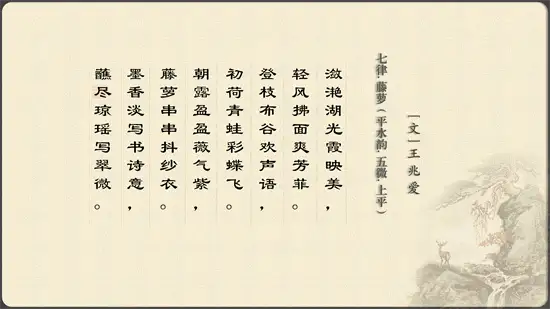 [文]王兆爱
七律·藤萝(平水韵·五微·上平)
潋滟湖光霞映美，
轻风拂面爽芳菲。
登枝布谷欢声语，
初荷青蛙彩蝶飞。
朝露盈盈薇气紫，
藤萝串串抖纱衣。
墨香淡写书诗意，
蘸尽琼瑶写翠微。